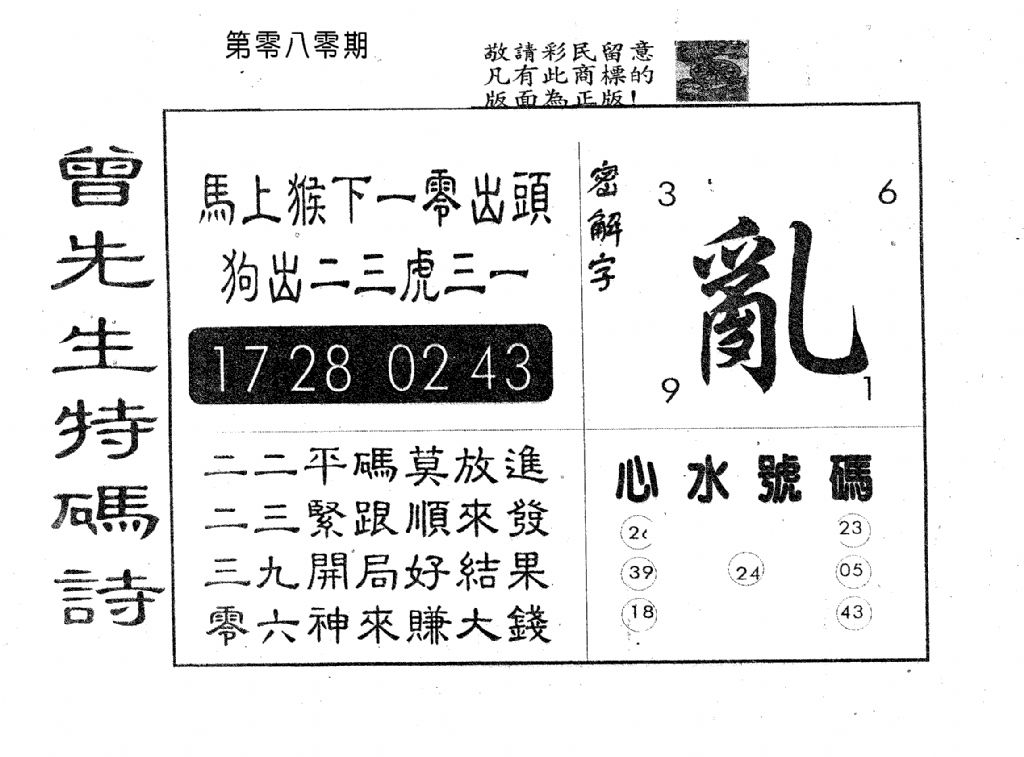 第零八零期
敬請彩民留意
凡有此商標的
版面為正版！
曾先生特碼詩
馬上猴下一零出頭
狗出二三虎三一
17 28 02 43
二二平碼莫放進
二三緊跟順來發
三九開局好結果
零六神來賺大錢
密解字
3 6
亂
9 1
心水號碼
26 23
39 24 05
18 43